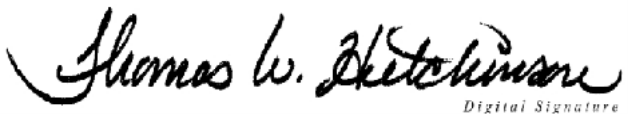 Thomas W. Hutchinson
Digital Signature